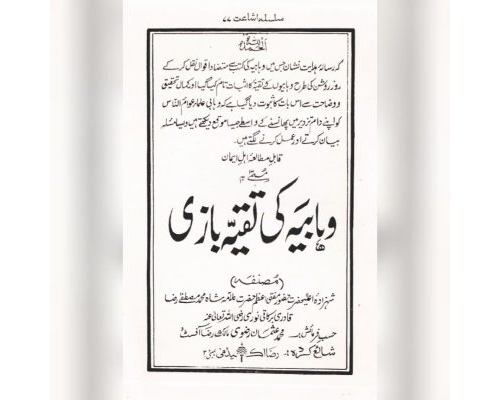 سلسلہ اشاعت ۷۷
الحمد للہ
کہ رسالہ ہدایت نشان جس میں وہابیہ کی کتب سے متضاد اقوال نقل کر کے
روز روشن کی طرح وہابیوں کے تقیہ کا اثبات تام کیا گیا اور کمال تحقیق
و وضاحت سے اس بات کا ثبوت دیا گیا ہے کہ وہابی علماء عوام الناس
کو اپنے دام تزویر میں پھانسنے کے واسطے جیسا موقع دیکھتے ہیں ویسا مسئلہ
بیان کرتے اور عمل کرنے لگتے ہیں۔
قابل مطالعہ اہل ایمان
وہابیہ کی تقیہ بازی
(مصنفہ)
شہزادہ اعلیحضرت حضور مفتی اعظم حضرت علامہ شاہ محمد مصطفے رضا
قادری برکاتی نوری رضی اللہ تعالیٰ عنہ
حسب فرمائش:۔ محمد عثمان رضوی مالک رضا آفسٹ
شائع کردہ:۔ رضا اکیڈمی بمبئی ۳